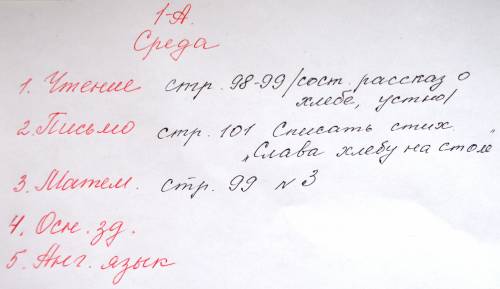 1-А.
Среда
1. Чтение стр. 98-99/сост. рассказ о
хлебе, устно/
2. Письмо стр. 101 Списать стих.
„Слава хлебу на столе"
3. Матем. стр. 99 №3
4. Осн. зд.
5. Анг. язык